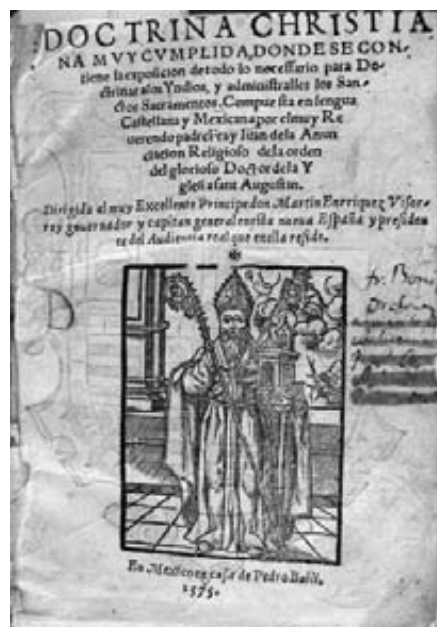 DOCTRINA CHRISTIA
NA MVY CVMPLIDA, DONDE SE CON-
tiene la exposicion de todo lo necessario para Do-
ctrinar a los Yndios, y administralles los San-
ctos Sacramentos. Compuesta en lengua
Castellana y Mexicana por el muy Re
uerendo padre Fray Iuan dela Anun
ciacion Religioso dela orden
del glorioso Doctor dela Y
glesia sant Augustin.
Dirigida al muy Excellente Principe don Martin Enrriquez Visor-
rey gouernador y capitan general enesta nueua España y presiden
te del Audiencia real que enella reside.
En Mexico en casa de Pedro Balli.
1575.